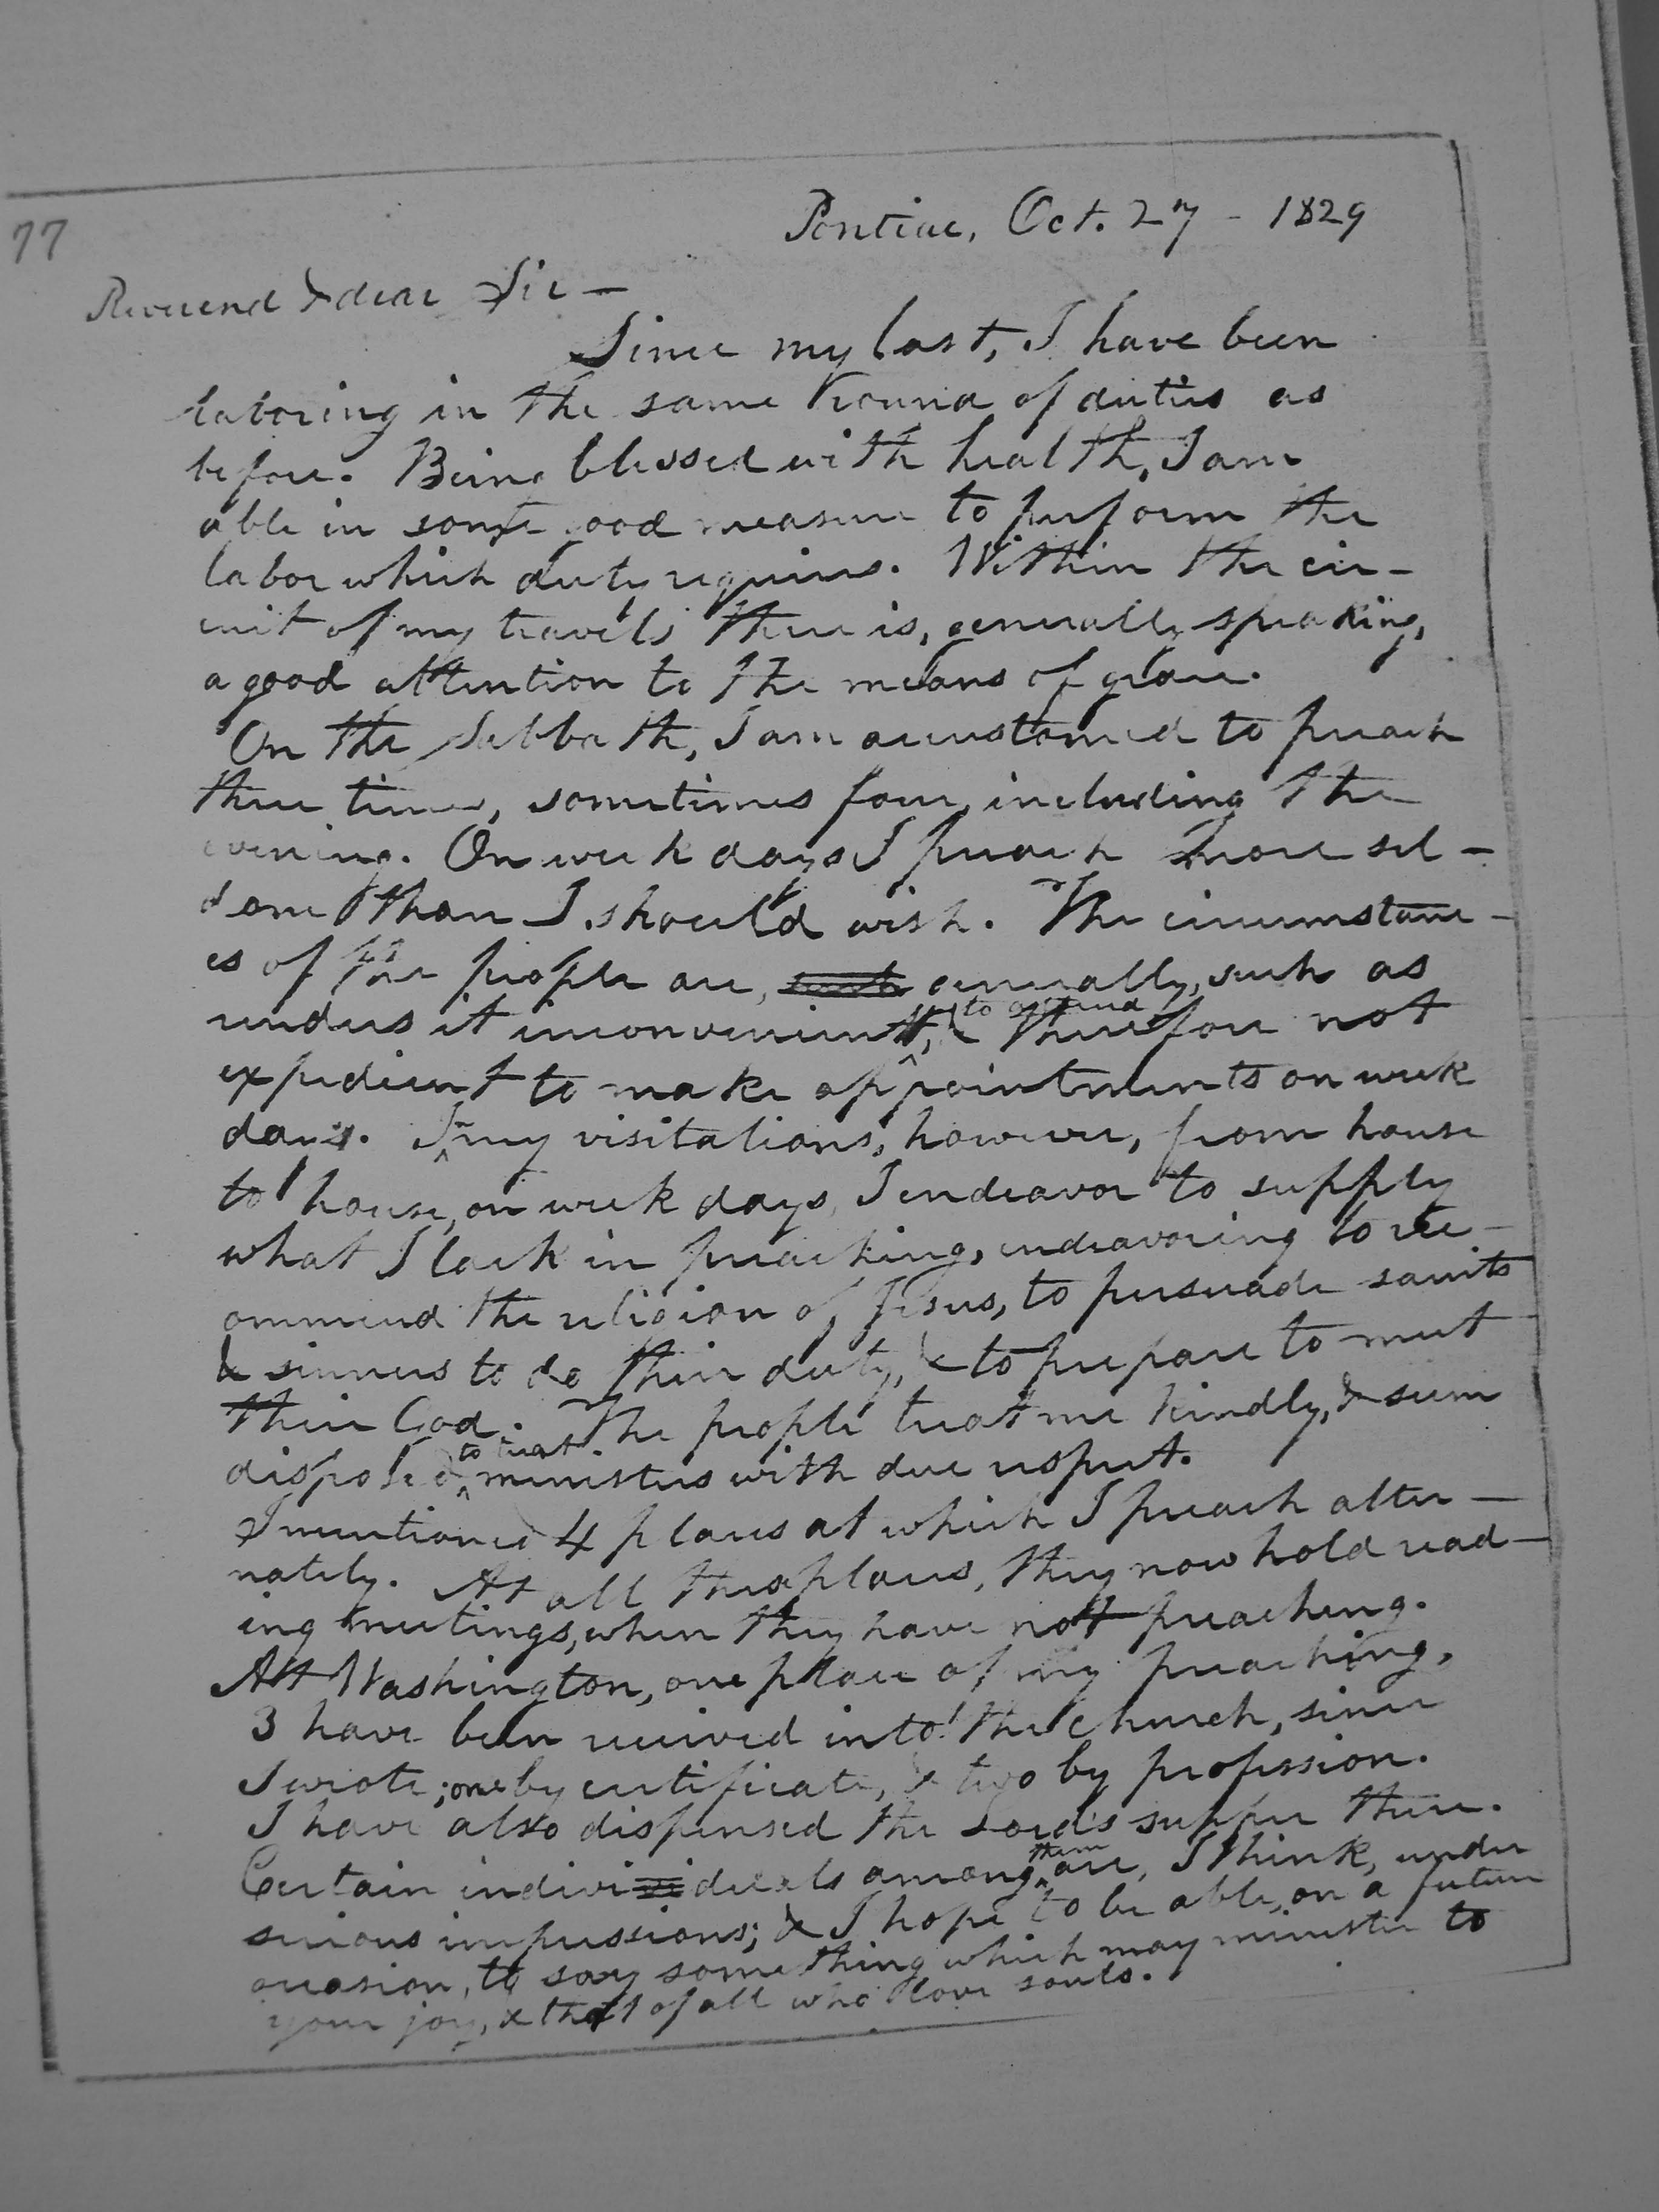 77
Pontiac, Oct. 27 - 1829
Reverend & dear Sir -
Since my last, I have been
laboring in the same round of duties as
before. Being blessed with health, I am
able in some good measure to perform the
labor which duty requires. Within the cir-
cuit of my travels there is, generally speaking,
a good attention to the means of grace.
On the Sabbath, I am accustomed to preach
three times, sometimes four, including the
evening. On week days I preach more sel-
dom than I should wish. The circumstanc-
es of the people are, generally, such as
renders it inconvenient to attend, & therefore not
expedient to make appointments on week
days. In my visitations, however, from house
to house, on week days, I endeavor to supply
what I lack in preaching, endeavoring to rec-
ommend the religion of Jesus, to persuade saints
& sinners to do their duty, & to prepare to meet
their God. The people treat me kindly, & seem
disposed to treat ministers with due respect.
I mentioned 4 places at which I preach alter-
nately. At all these places, they now hold read-
ing meetings, when they have not preaching.
At Washington, one place of my preaching,
3 have been received into the church, since
I wrote; one by certificate, & two by profession.
I have also dispensed the Lord's supper there.
Certain individuals among them are, I think, under
serious impressions; & I hope to be able, on a future
occasion, to say something which may minister to
your joy, & that of all who love souls.